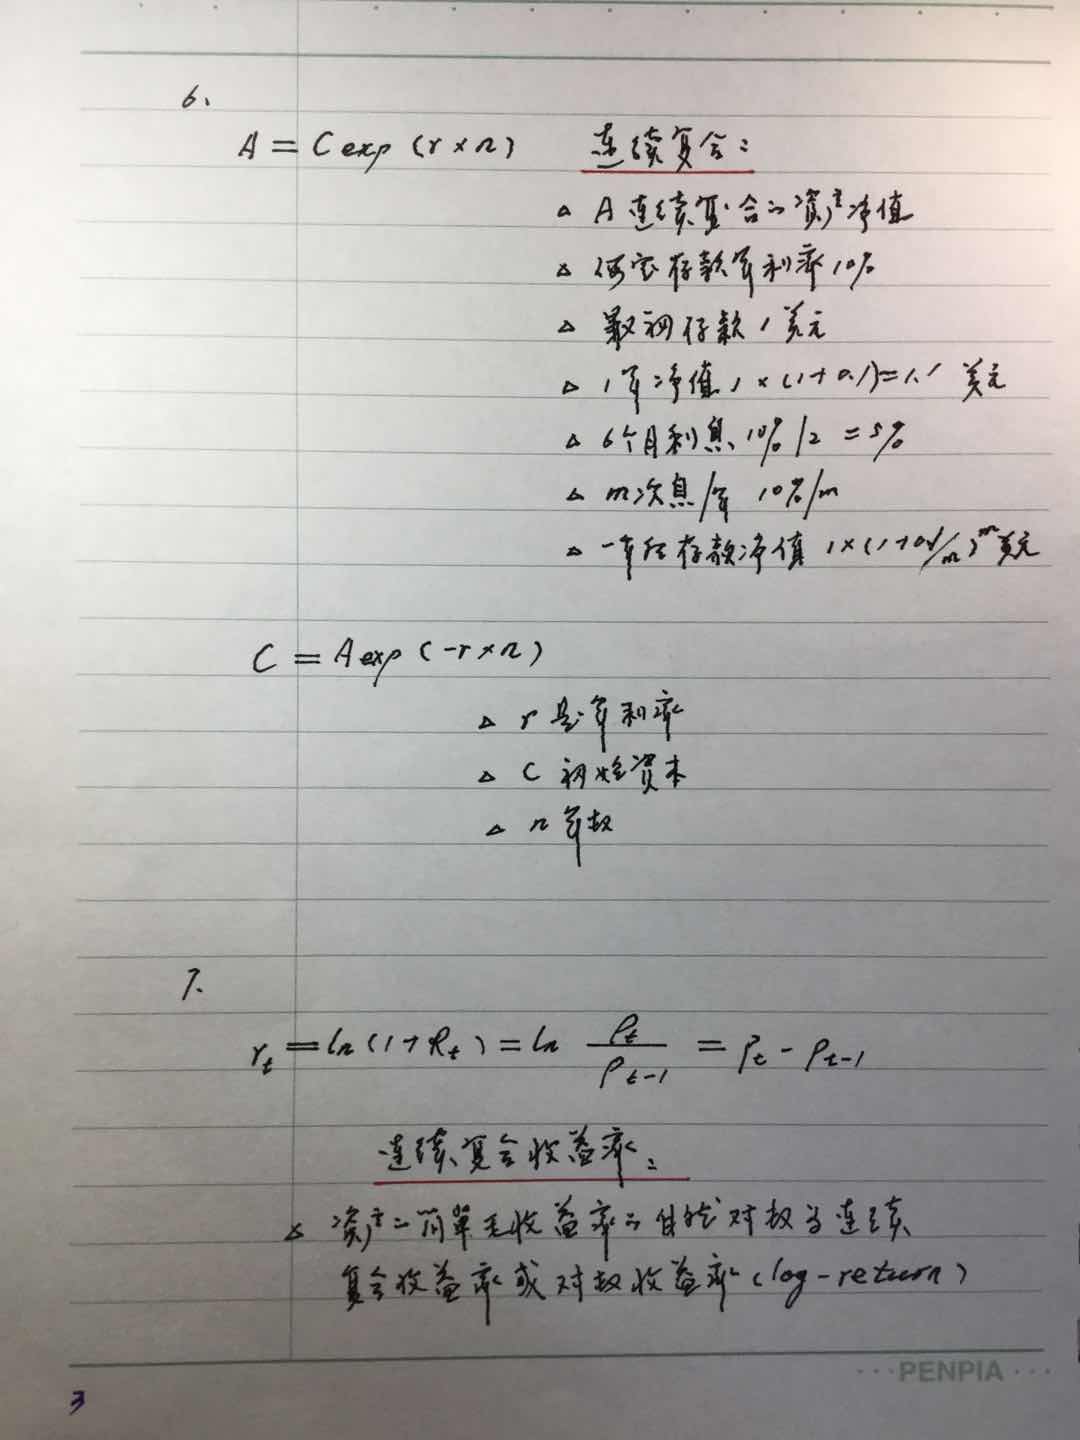 6、
A = C exp (r × n) 连续复合：
△ A 连续复合的资产净值
△ 假定存款年利率 10%
△ 最初存款 1 美元
△ 1年净值 1 × (1+0.1)=1.1 美元
△ 6个月利息 10%/2 = 5%
△ m次息/年 10%/m
△ 一年后存款净值 1×(1+0.1/m)^m 美元
C = A exp (-r × n)
△ r 是年利率
△ C 初始资本
△ n 年数
7.
r_t = ln (1+R_t) = ln P_t / P_t-1 = p_t - p_t-1
连续复合收益率：
△ 资产的简单毛收益率的自然对数为连续
复合收益率或对数收益率 (log-return)
PENPIA
3